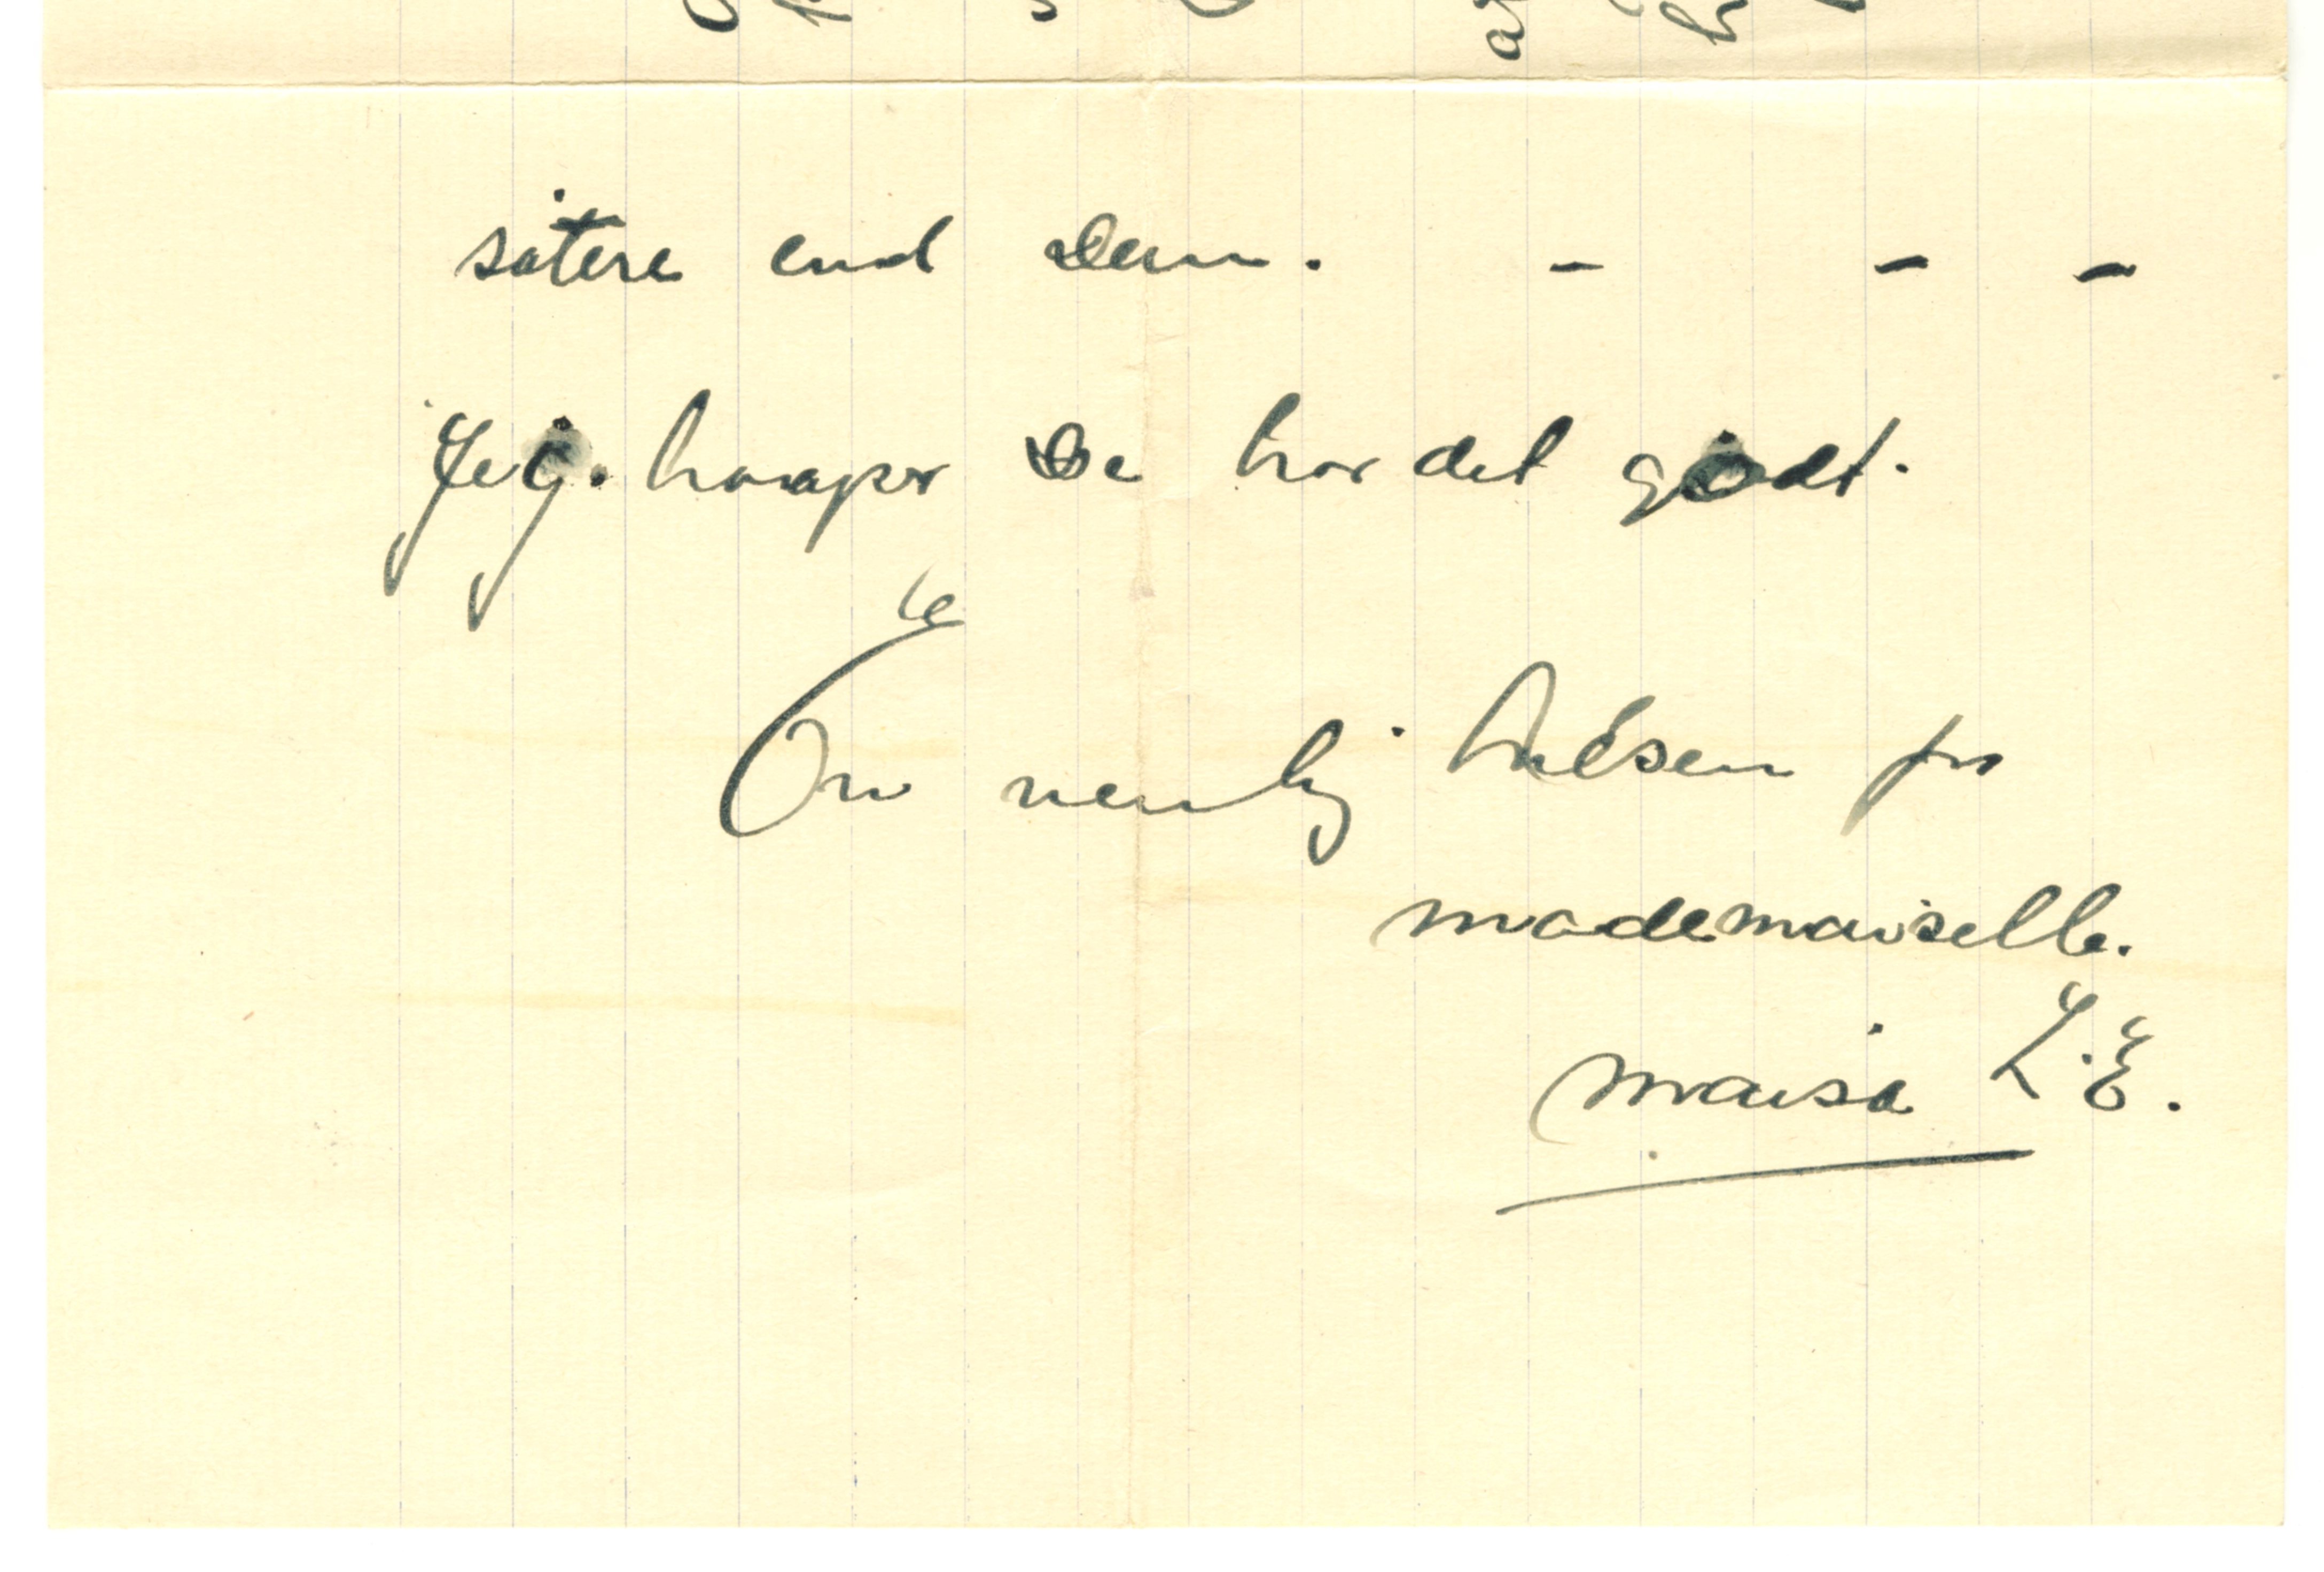 sitere end Dem. - - -
Jeg. haaper De har det godt.
En venlig hilsen fra
mademoiselle.
Maisa L.E.